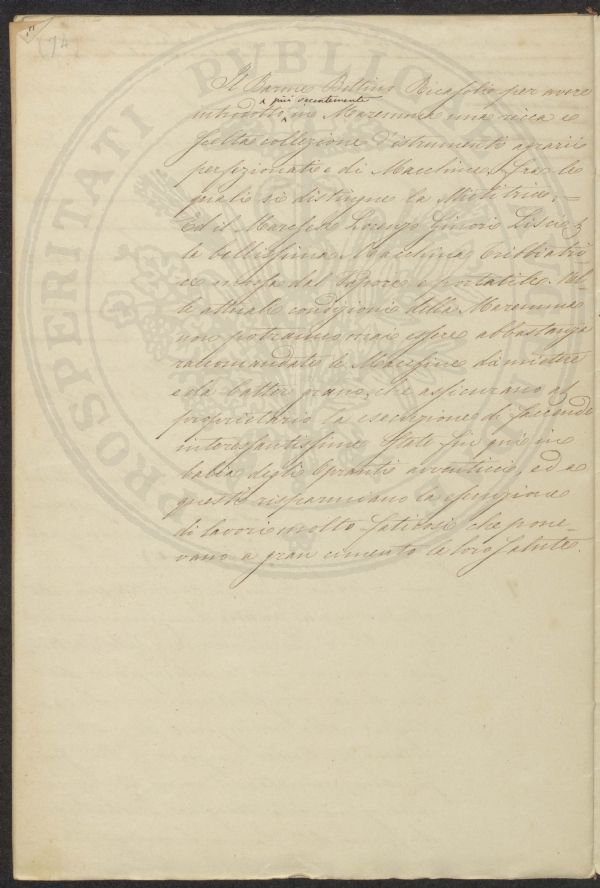 (74)
Il Barone Bettino Ricasoli per avere
più recentemente
introdotto in Maremma una ricca e
scelta collezione d'istrumenti agrarii
perfezionati e di Macchine, fra le
quali si distingue la Mietitrice. =
Ed il Marchese Lorenzo Ginori Lisci
la bellissima Macchina Tribbiatri-
ce mossa dal Vapore e portatile. Nel-
le attuali condizioni della Maremma
non potranno mai essere abbastanza
raccomandate le Macchine da mietere
e da batter grano, che assicurano al
proprietario la esecuzione di faccende
interessantissime state fin qui in
balìa degli Opranti avventicii, ed a
questi risparmiano la esecuzione
di lavori molto faticosi che pone-
vano a gran cimento la loro salute.
PROSPERITATI PUBLICAE